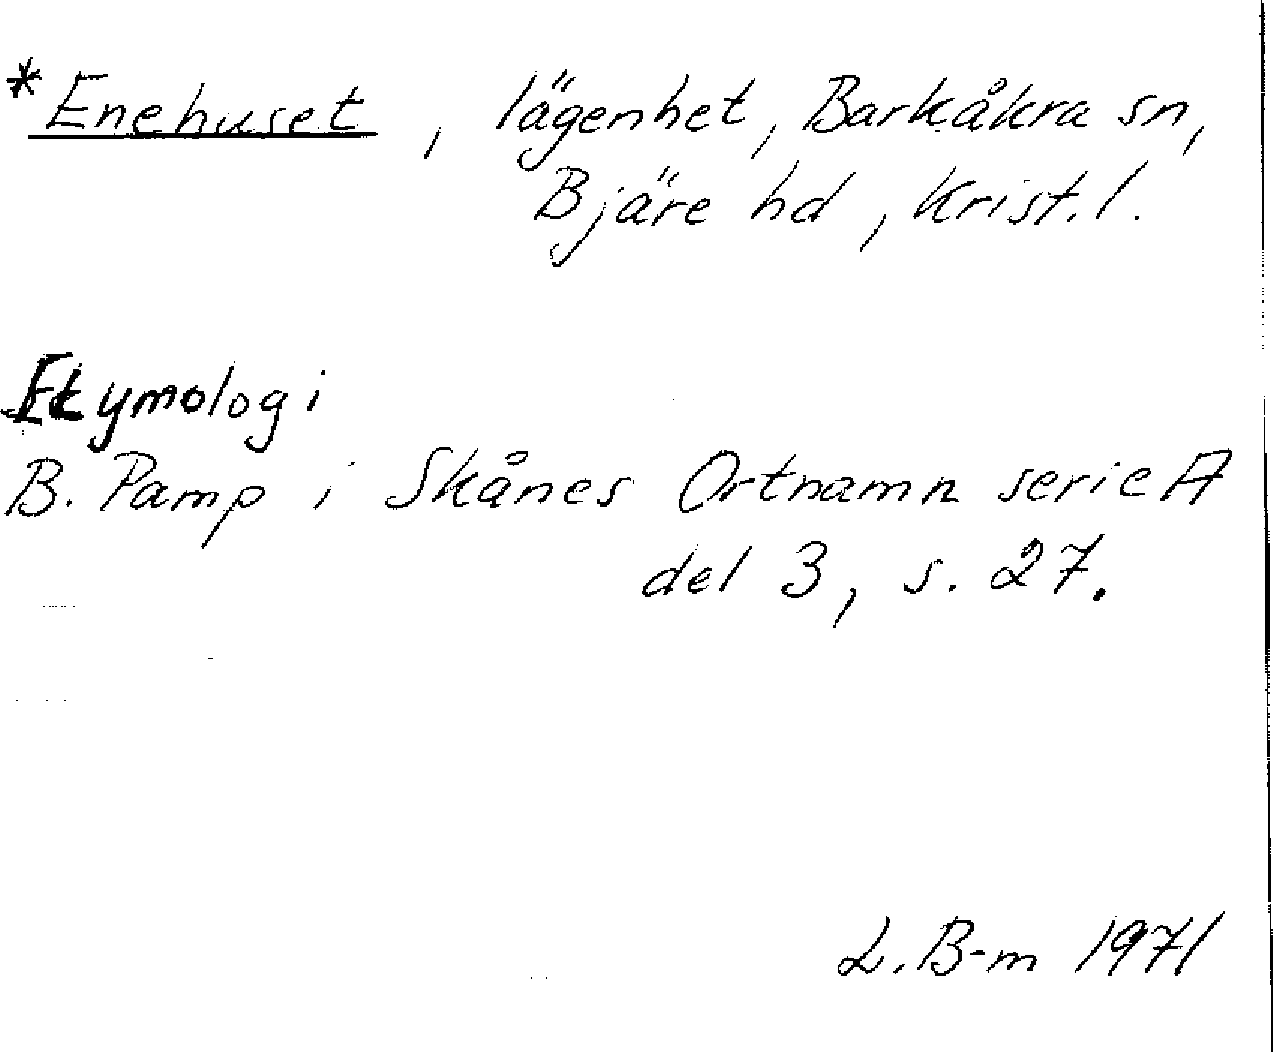 *Enehuset, lägenhet, Barkåkra sn,
Bjäre hd, Krist. l.
Etymologi
B. Pamp i Skånes Ortnamn serie A
del 3, s. 27.
L. B-m 1971